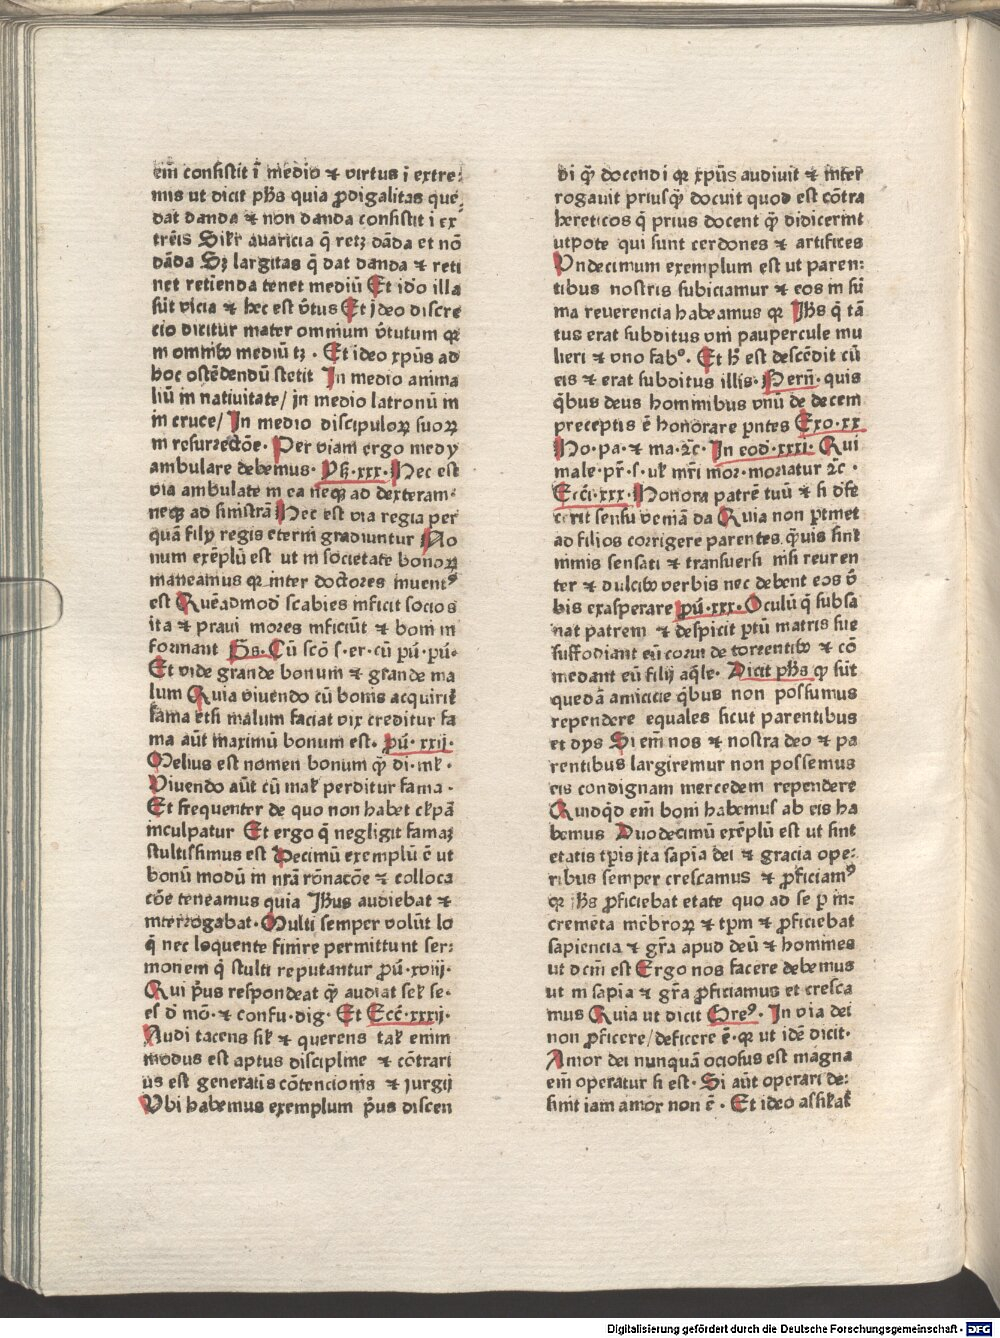 em̄ consistit ī medio ⁊ virtus ī extre:
mis ut dicit ph̄s quia ꝓdigalitas que
dat danda ⁊ non danda consistit i ex
trēis Sikr avaricia q̄ retꝫ dāda et nō
dāda Sꝫ largitas q̄ dat danda ⁊ reti
net retienda tenet mediū Et ido illa
sūt vicia ⁊ hec est v̄tus Et jdeo discre
cio dicitur mater omnium v̄tutum qꝛ
in omnibꝰ mediū tꝫ · Et ideo xpūs ad
hoc ostēdendū stetit In medio anima
liū in nativitate/ in medio latronū in
in cruce/ In medio discipuloꝝ suoꝝ
in resurrectōe· Per viam ergo medy
ambulare debemus· Pẖ·xxx· Hec est
via ambulate in ea neqꝫ ad dexteram·
neqꝫ ad sinistrā Hec est via regia per
quā fily regis eterni gradiuntur No
num exēplū est ut in societate bonoꝝ
maneamus qꝛ inter doctores inuentꝰ
est Quēadmod̄ scabies inficit socios
ita ⁊ praui mores inficiūt ⁊ boni in
formant Ps· Cū scō s·er·cū pū·pū·
Et vide grande bonum ⁊ grande ma
lum Quia viuendo cū bonis acquirit̄
fama etsi malum faciat vix creditur fa
ma aūt maximū bonum est· pū·xxij·
Melius est nomen bonum qͫ̄ di·mk̄·
Viuendo aūt cū mak̄ perditur fama·
Et frequenter de quo non habet ck̄pā
inculpatur Et ergo q̄ negligit famaꝫ
stultissimus est Decimū exemplū ē ut
bonū modū in nrā rōnacōe ⁊ colloca
cōe teneamus quia Jh̄us audiebat ⁊
interrogabat· Multi semper volūt lo
q̄ nec loquente finire permittunt ser:
monem q̄ stulti reputantur ꝓū·xviij·
Qui p̄us respondeat qͫ̄ audiat sek̄ se·
es̄ d̄ mō·⁊ confu·dig· Et Eccī·xxxij·
Audi tacens sik̄ ⁊ querens tak̄ enim
modus est aptus discipline ⁊ cōtrari
us est generatis cōtencionis ⁊ jurgij
Vbi habemus exemplum p̄us discen
di qͫ̄ docendi qꝛ xpūs audiuit ⁊ inter̄
rogauit priusqͫ̄ docuit quod est cōtra
hereticos q̄ prius docent qͫ̄ didicerint
utpote qui sunt cerdones ⁊ artifices
Vndecimum exemplum est ut paren:
tibus nostris subiciamur ⁊ eos in sū
ma reuerencia habeamus qꝛ Jh̄s q̄ tā
tus erat subditus vni paupercule mu
lieri ⁊ vno fabꝰ. Et h̄ est descēdit cū
eis ⁊ erat subditus illis· Bern̄· quis
q̄bus deus hominibus vnū de decem
preceptis ē honorare pn̄tes Exo·xx
Ho·pa·⁊ ma·⁊c̄· In eod̄·xxxi· Qui
male·pr̄·s·uk̄ mr̄i mor·moriatur ⁊c̄·
Eccī·xxx· Honora patrē tuū ⁊ si d̄fe
cerit sensu veniā da Quia non ꝑtinet
ad filios corrigere parentes q̄uis sint
nimis sensati ⁊ transuersi nisi reuren
ter ⁊ dulcibꝰ verbis nec debent eos v̄
bis exasperare pū·xxx· Oculū q̄ subsa
nat patrem ⁊ despicit ꝑtū matris sue
suffodiant eū corui de torrentibꝰ ⁊ cō
medant eū filij aq̄le· Dicit ph̄s qꝙ sūt
quedā amicicie q̄bus non possumus
rependere equales sicut parentibus
et dys Si em̄ nos ⁊ nostra deo ⁊ pa
rentibus largiremur non possemus
eis condignam mercedem rependere
Quidq̄d em̄ boni habemus ab eis ha
bemus Duodecimū exēplū est ut sint
etatis tp̄is jta sapīa dei ⁊ gracia ope:
ribus semper crescamus ⁊ ꝓficiamꝰ
qꝛ Jh̄s ꝓficiebat etate quo ad se ꝑ in:
cremēta mēbroꝝ ⁊ tp̄m ⁊ ꝓficiebat
sapiencia ⁊ gr̄a apud deū ⁊ hommes
ut dcm̄ est Ergo nos facere debemus
ut in sapīa ⁊ gr̄a ꝓficiamus et cresca
mus Quia ut dicit Greꝰ· In via dei
non ꝓficere/deficere ē·qꝛ ut idē dicit·
Amor dei nunquā ociosus est magna
em̄ operatur si est· Si aūt operari de:
sinit iam amor non ē· Et ideo assikak̄
Digitalisierung gefördert durch die Deutsche Forschungsgemeinschaft - DFG